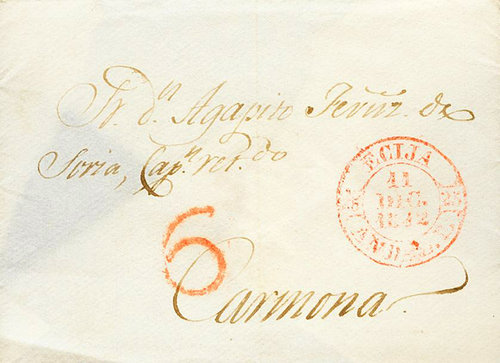 Sr. dⁿ Agapito Fernz. de
Soria, Capⁿ. ret.do
ECIJA
11
DIC.
1842
6
Carmona